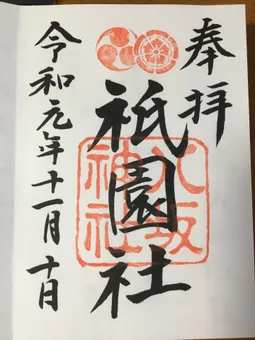 奉拝
祇園社
八坂神社
令和元年十一月十日